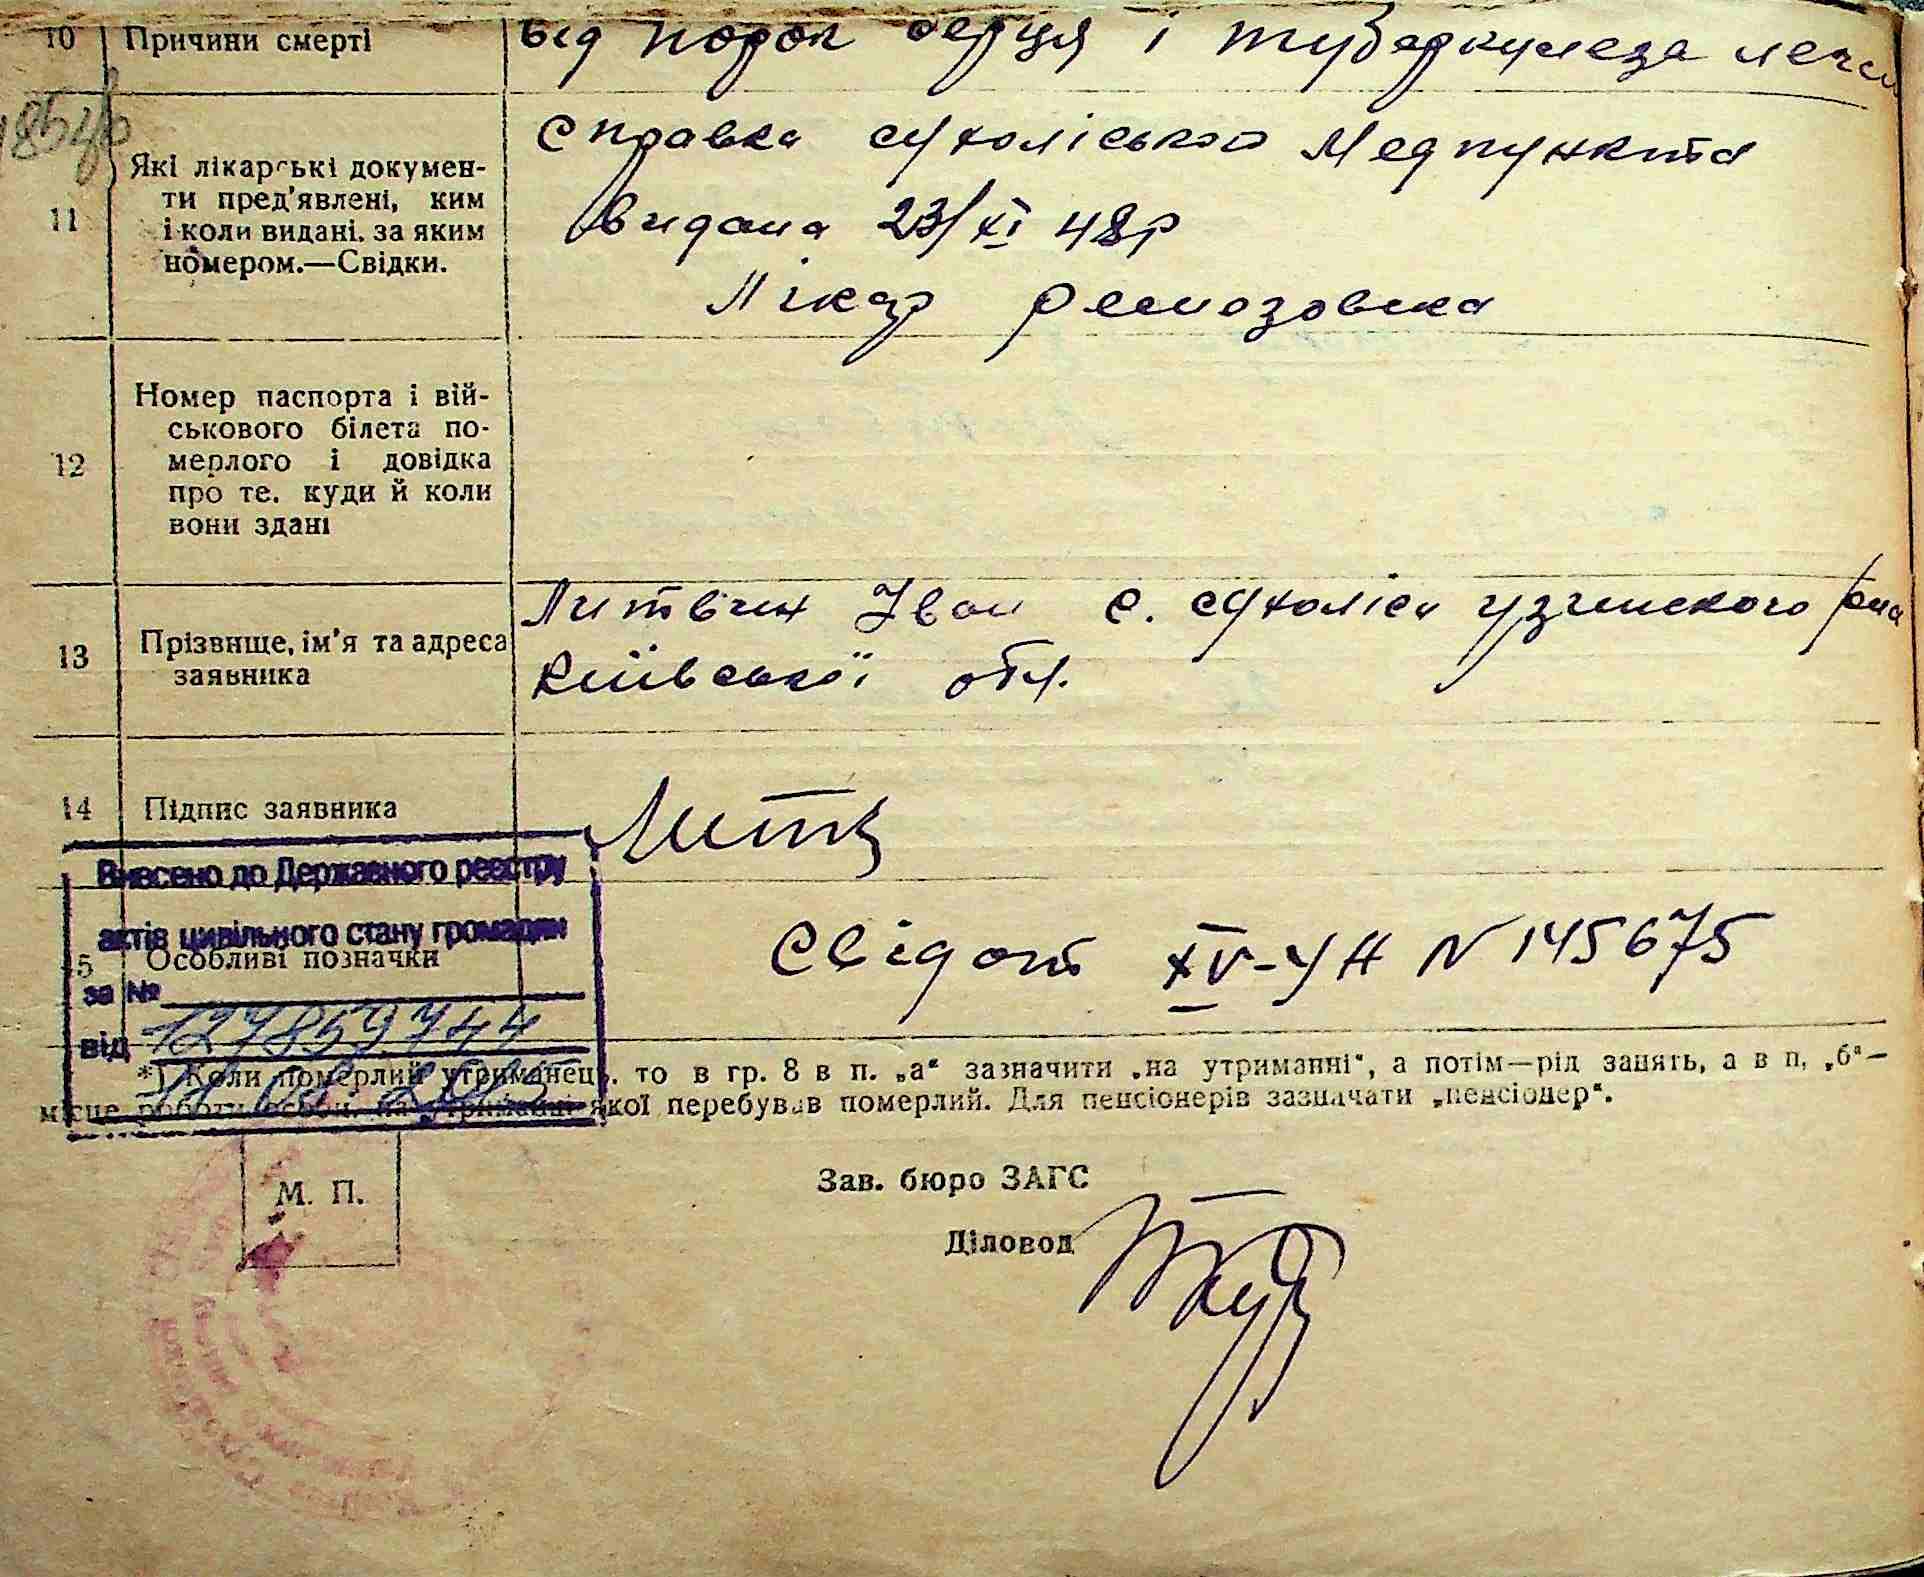 10 Причини смерті
від порок серця і туберкулеза
11 Які лікарські докумен-
ти пред'явлені, ким
і коли видані, за яким
номером.—Свідки.
Справка сухоліського Медпункта
видана 23/XI 48р
Лікар
12 Номер паспорта і вій-
ськового білета по-
мерлого і довідка
про те, куди й коли
вони здані
13 Прізвище, ім'я та адреса
заявника
Литвин Іван с. сухоліси узинского р/на
Київської обл.
14 Підпис заявника
Литв
Внесено до Державного реєстру
актів цивільного стану громадян
5 Особливі позначки
Свідот XV-УН N 145675
за №
від 127859744
*) Коли померлий утриманець, то в гр. 8 в п. „а“ зазначити „на утриманні“, а потім—рід занять, а в п. „б“—
місце роботи особи, на утриманні якої перебував померлий. Для пенсіонерів зазначати „пенсіонер“.
М. П.
Зав. бюро ЗАГС
Діловод